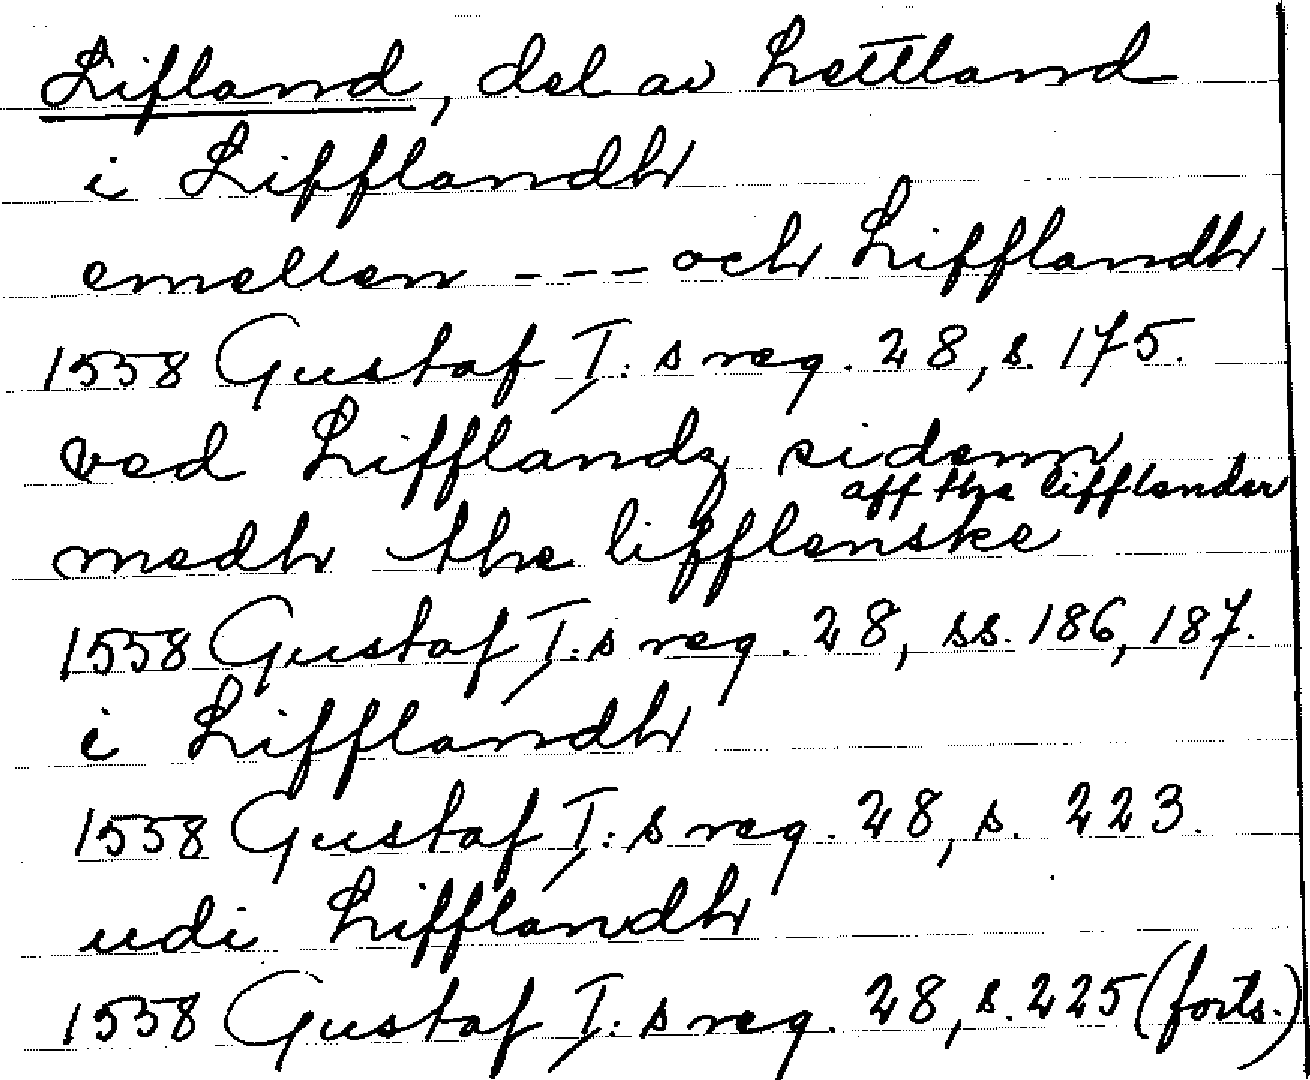 Lifland, del av Lettland
i Lifflandh
emellen --- och Lifflandh
1558 Gustaf I:s reg. 28, s. 175.
ved Lifflandz sidenn
aff the lifflender
medh the lifflenske
1558 Gustaf I:s reg. 28, ss. 186, 187.
i Lifflandh
1558 Gustaf I:s reg. 28, s. 223.
udi Lifflandh
1558 Gustaf I:s reg. 28, s. 225 (forts.)